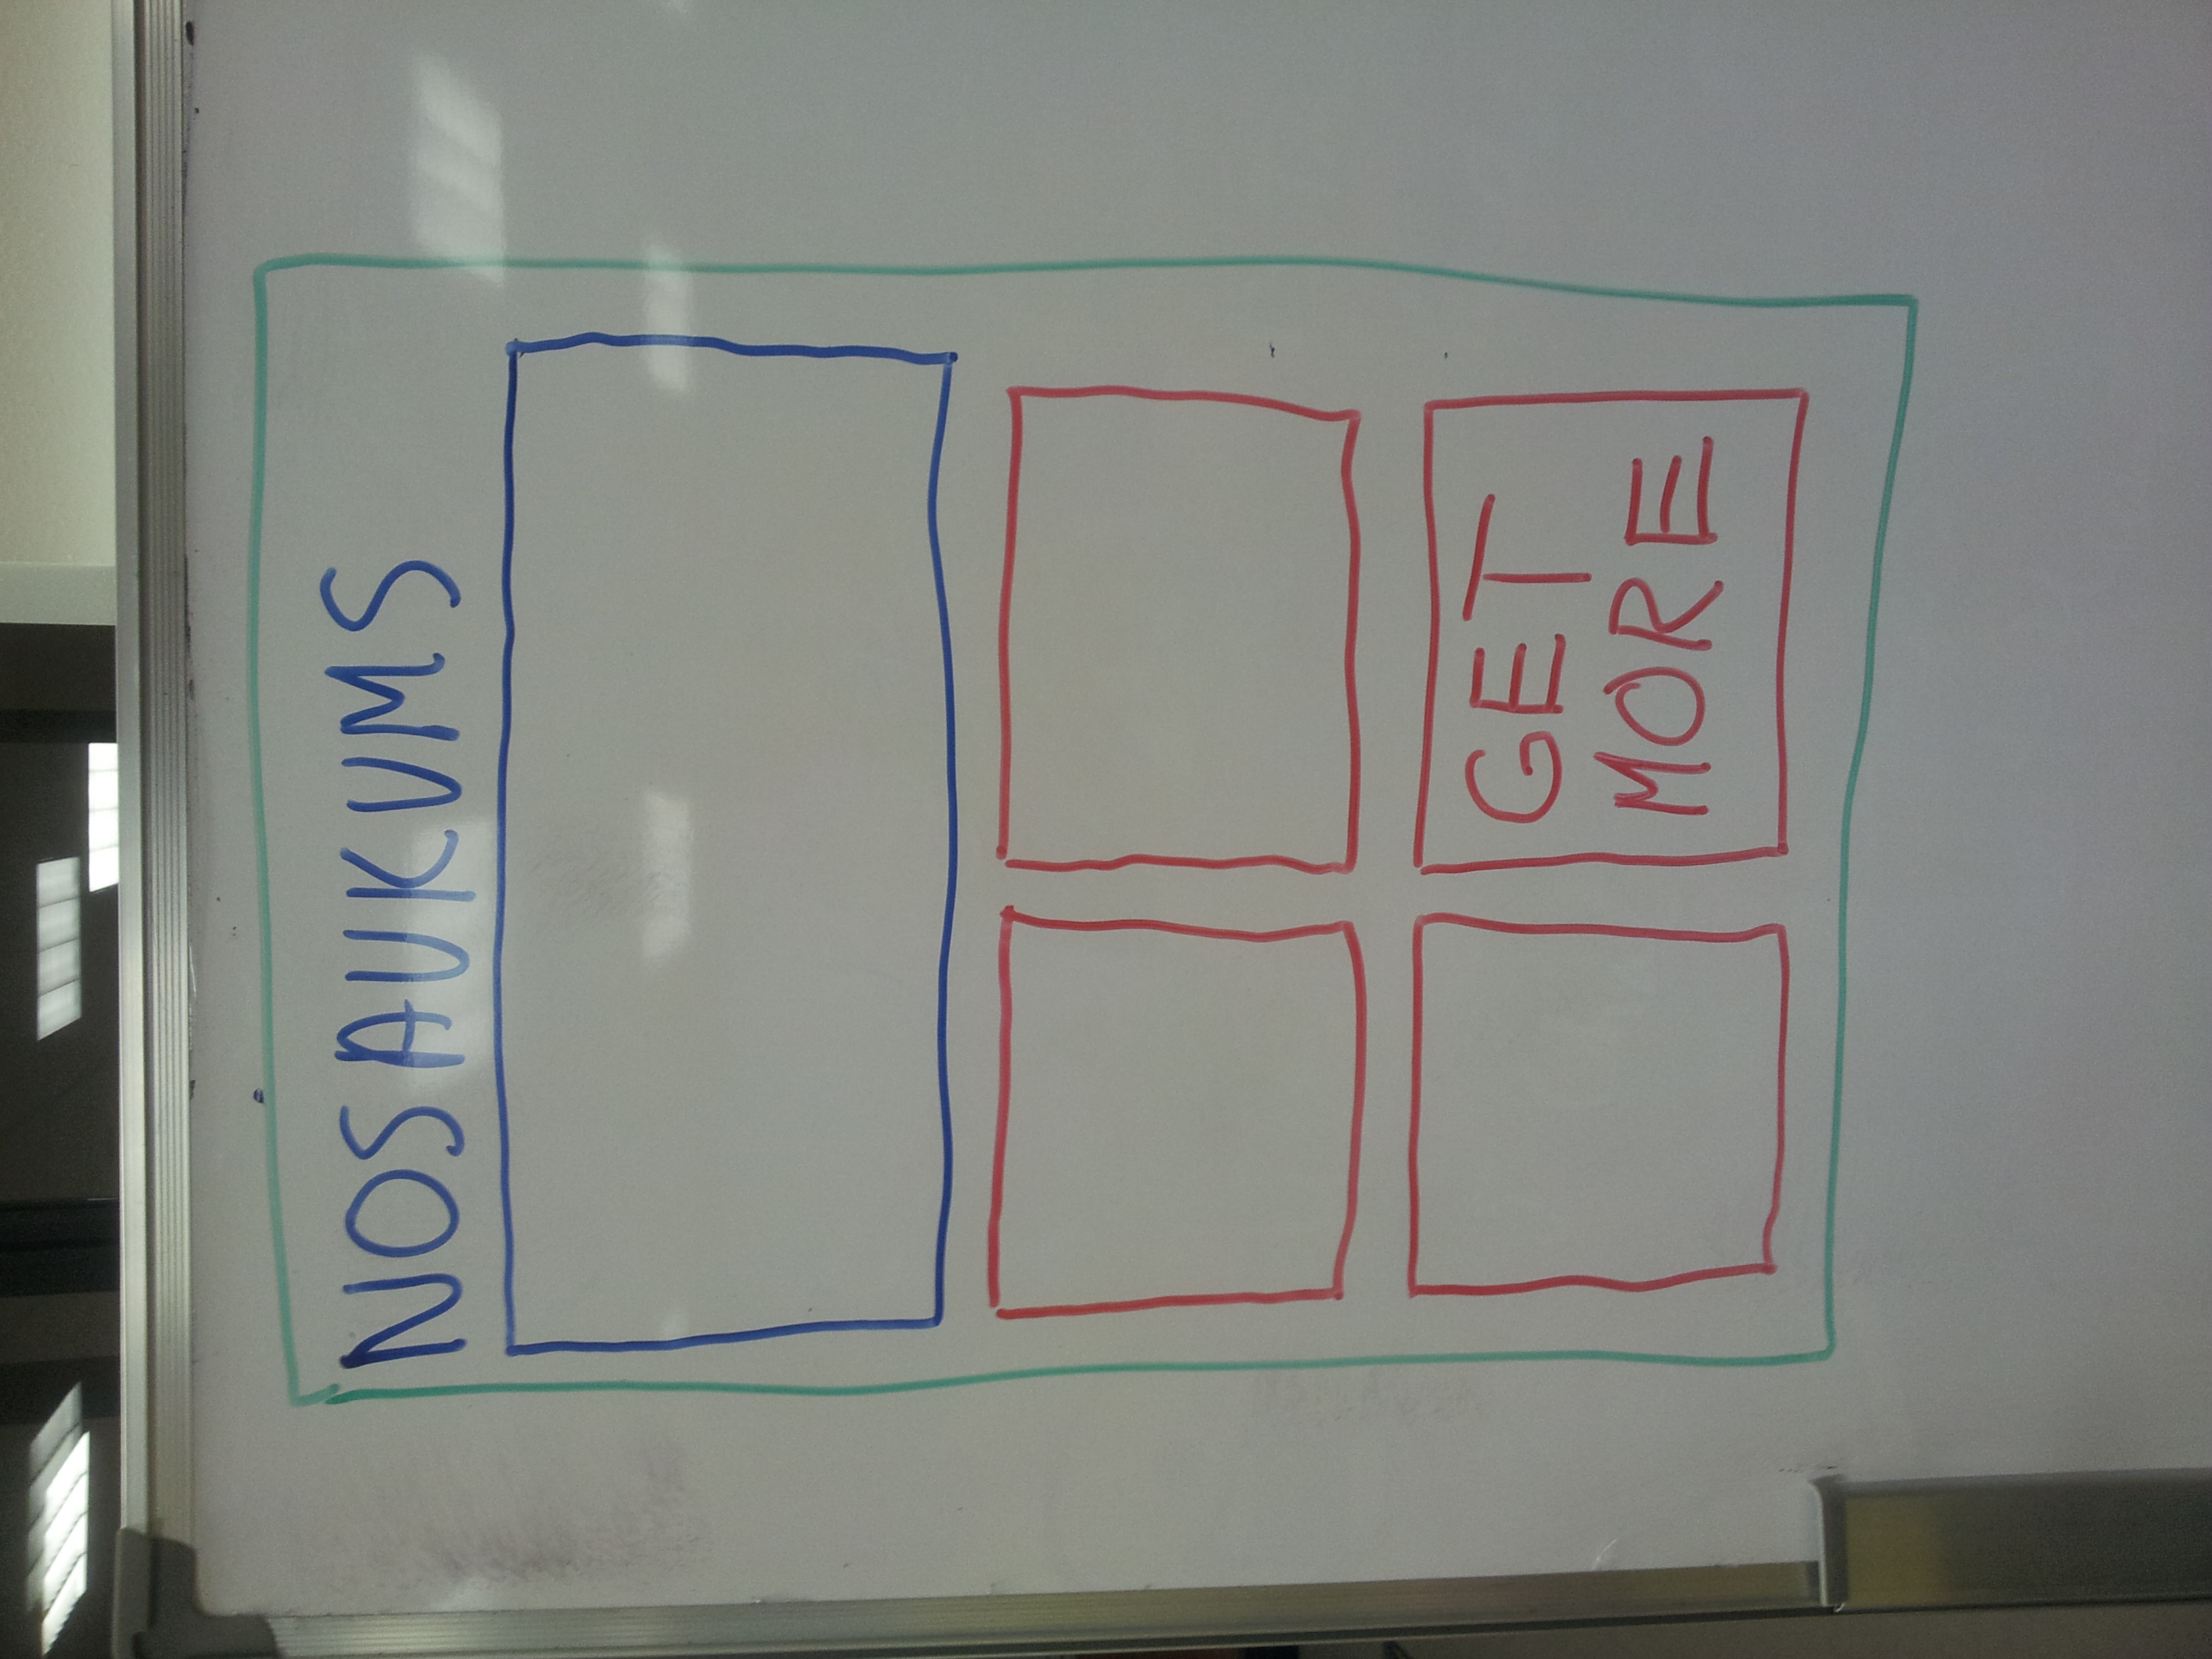 NOSAUKUMS
GET
MORE